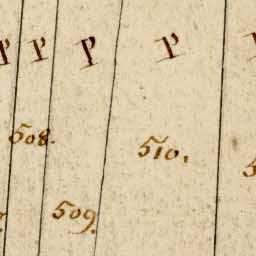 P P P P
508.
510.
509.